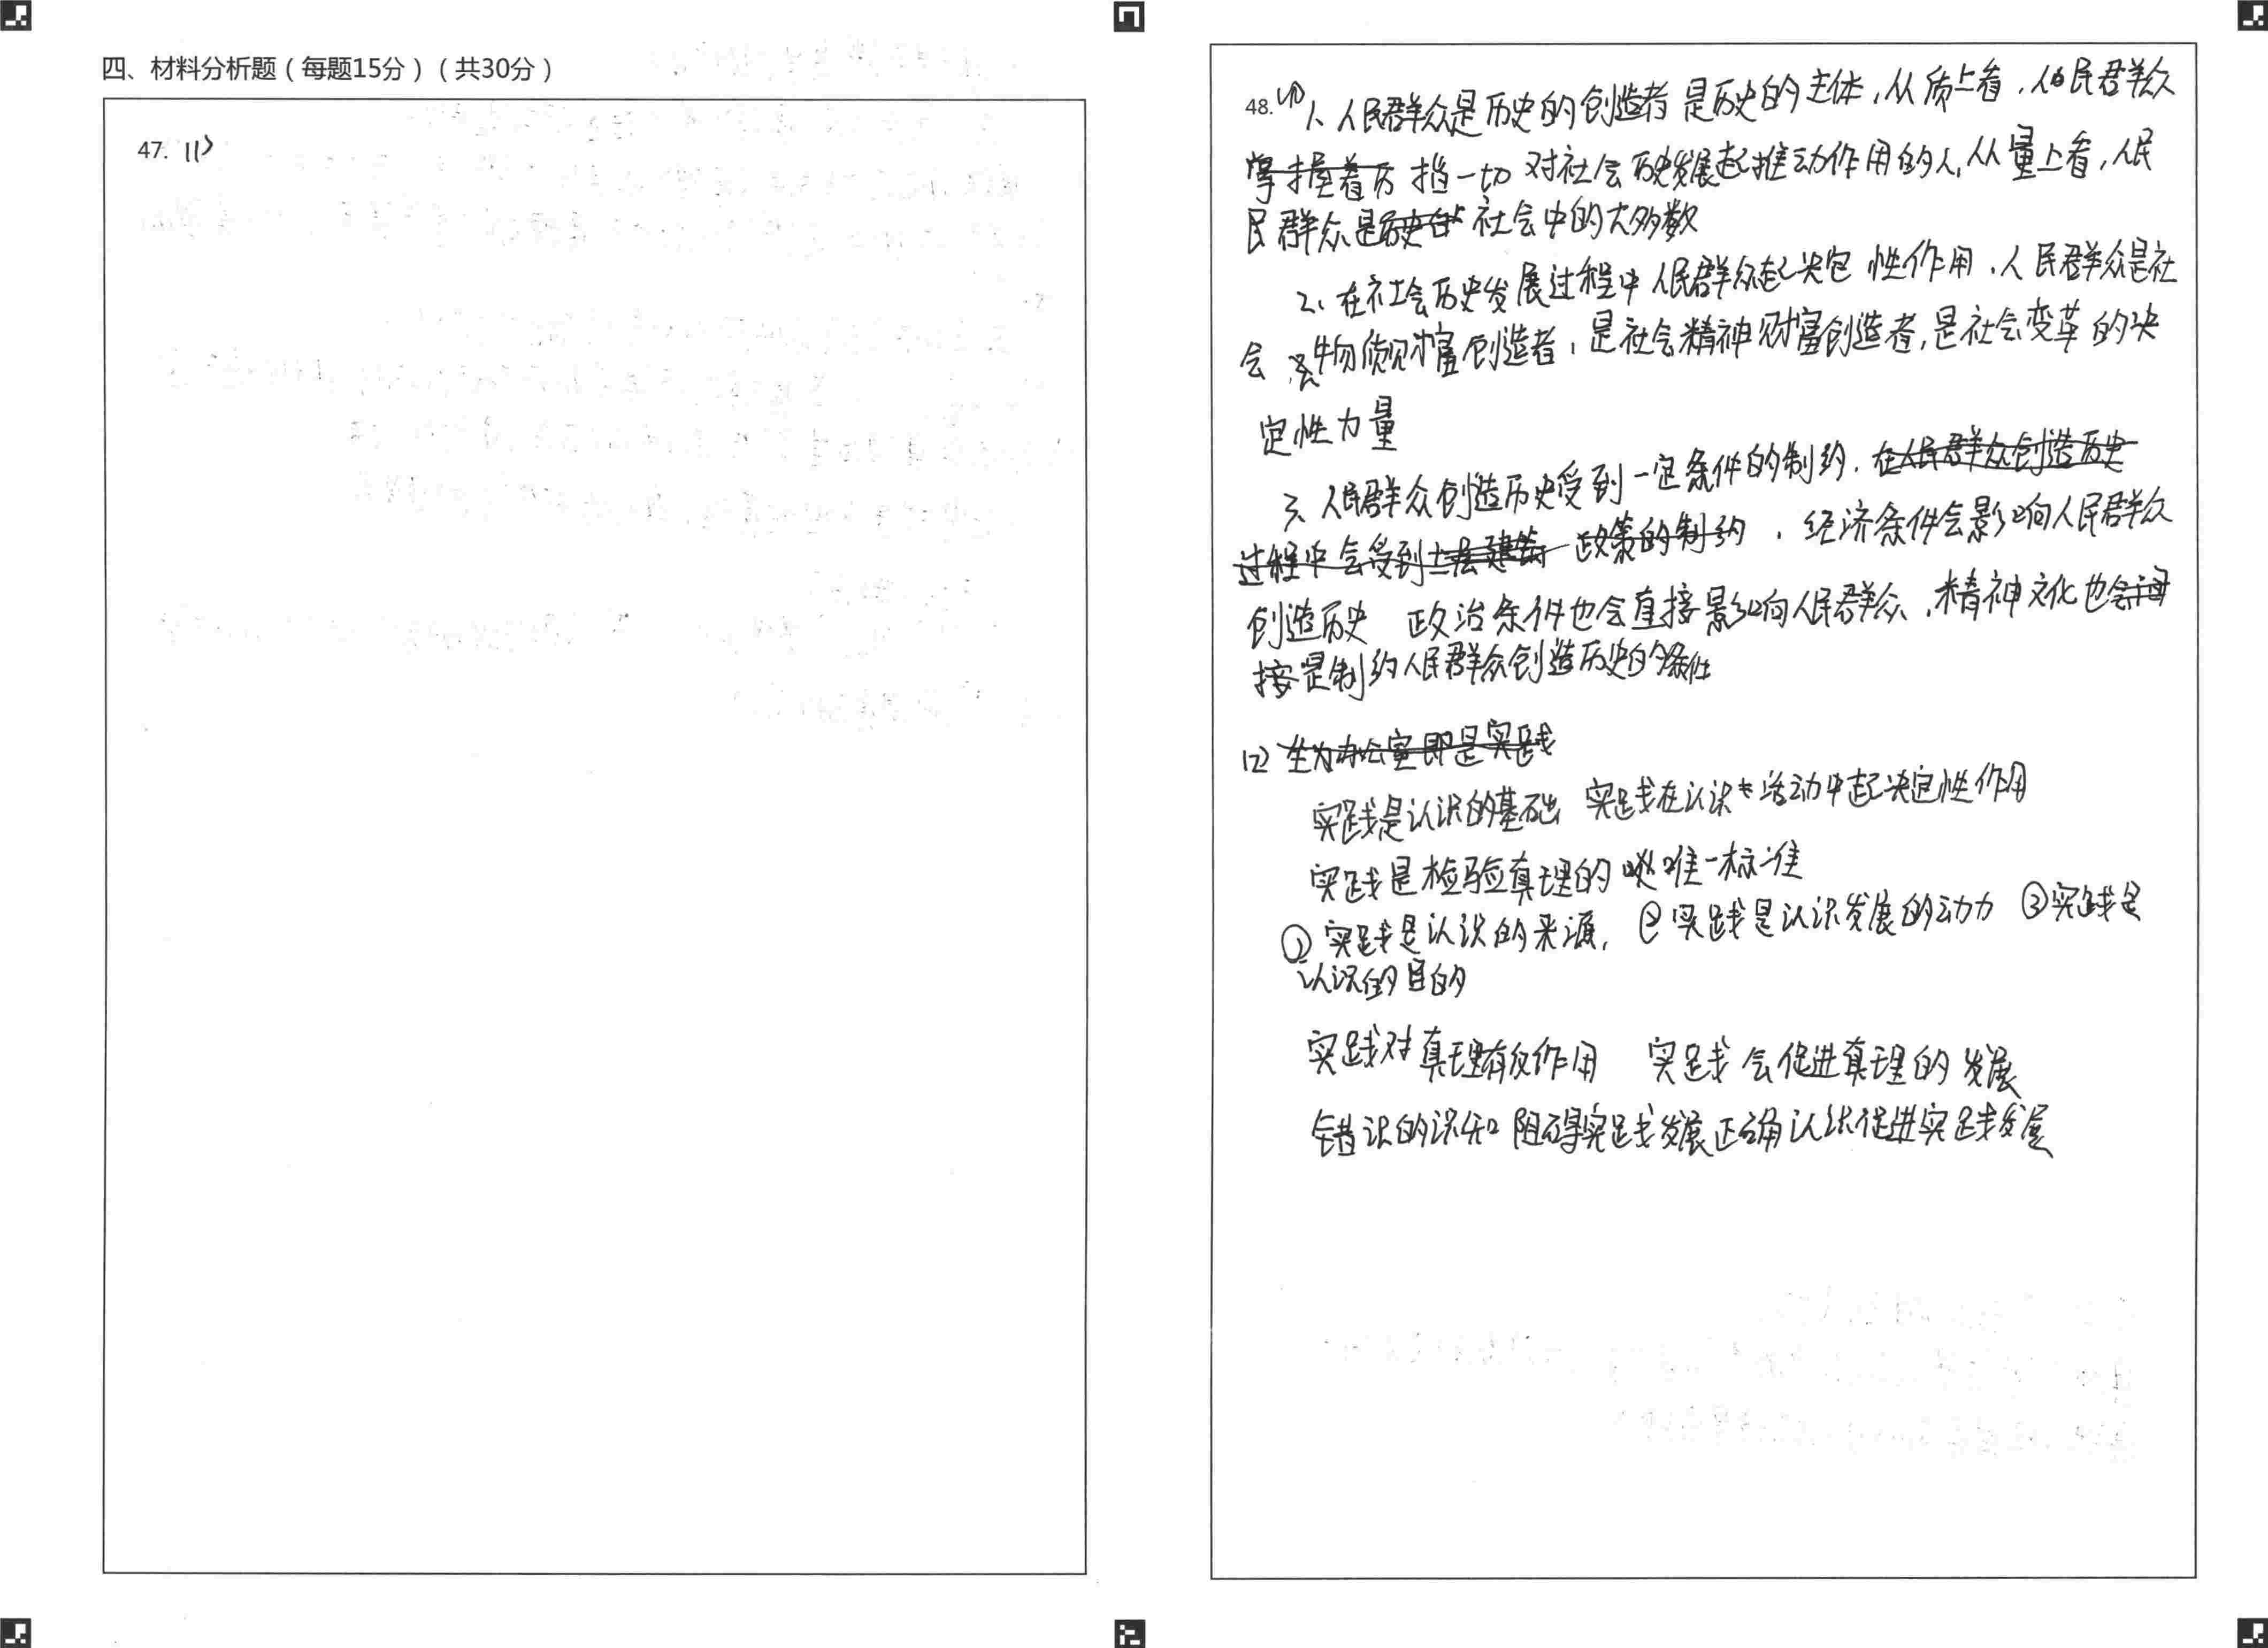 四、材料分析题（每题15分）（共30分）
47. (1)
48.(1) 1、人民群众是历史的创造者 是历史的主体，从质上看，人民群众
掌握着历 指一切对社会历史发展起推动作用的人，从量上看，人民
民群众是历史的 社会中的大多数
2、在社会历史发展过程中人民群众起决定性作用，人民群众是社
会 物质财富创造者，是社会精神财富创造者，是社会变革的决
定性力量
3、人民群众创造历史受到一定条件的制约，在人民群众创造历史
过程中会受到上层建筑 政策的制约，经济条件会影响人民群众
创造历史 政治条件也会直接影响人民群众，精神文化也会间
接是制约人民群众创造历史的条件
(2) 坐为办公室即是实践
实践是认识的基础 实践在认识活动中起决定性作用
实践是检验真理的唯一标准
① 实践是认识的来源，②实践是认识发展的动力 ③实践是
认识的目的
实践对真理有反作用 实践会促进真理的发展
错识的认知阻碍实践发展正确认识促进实践发展